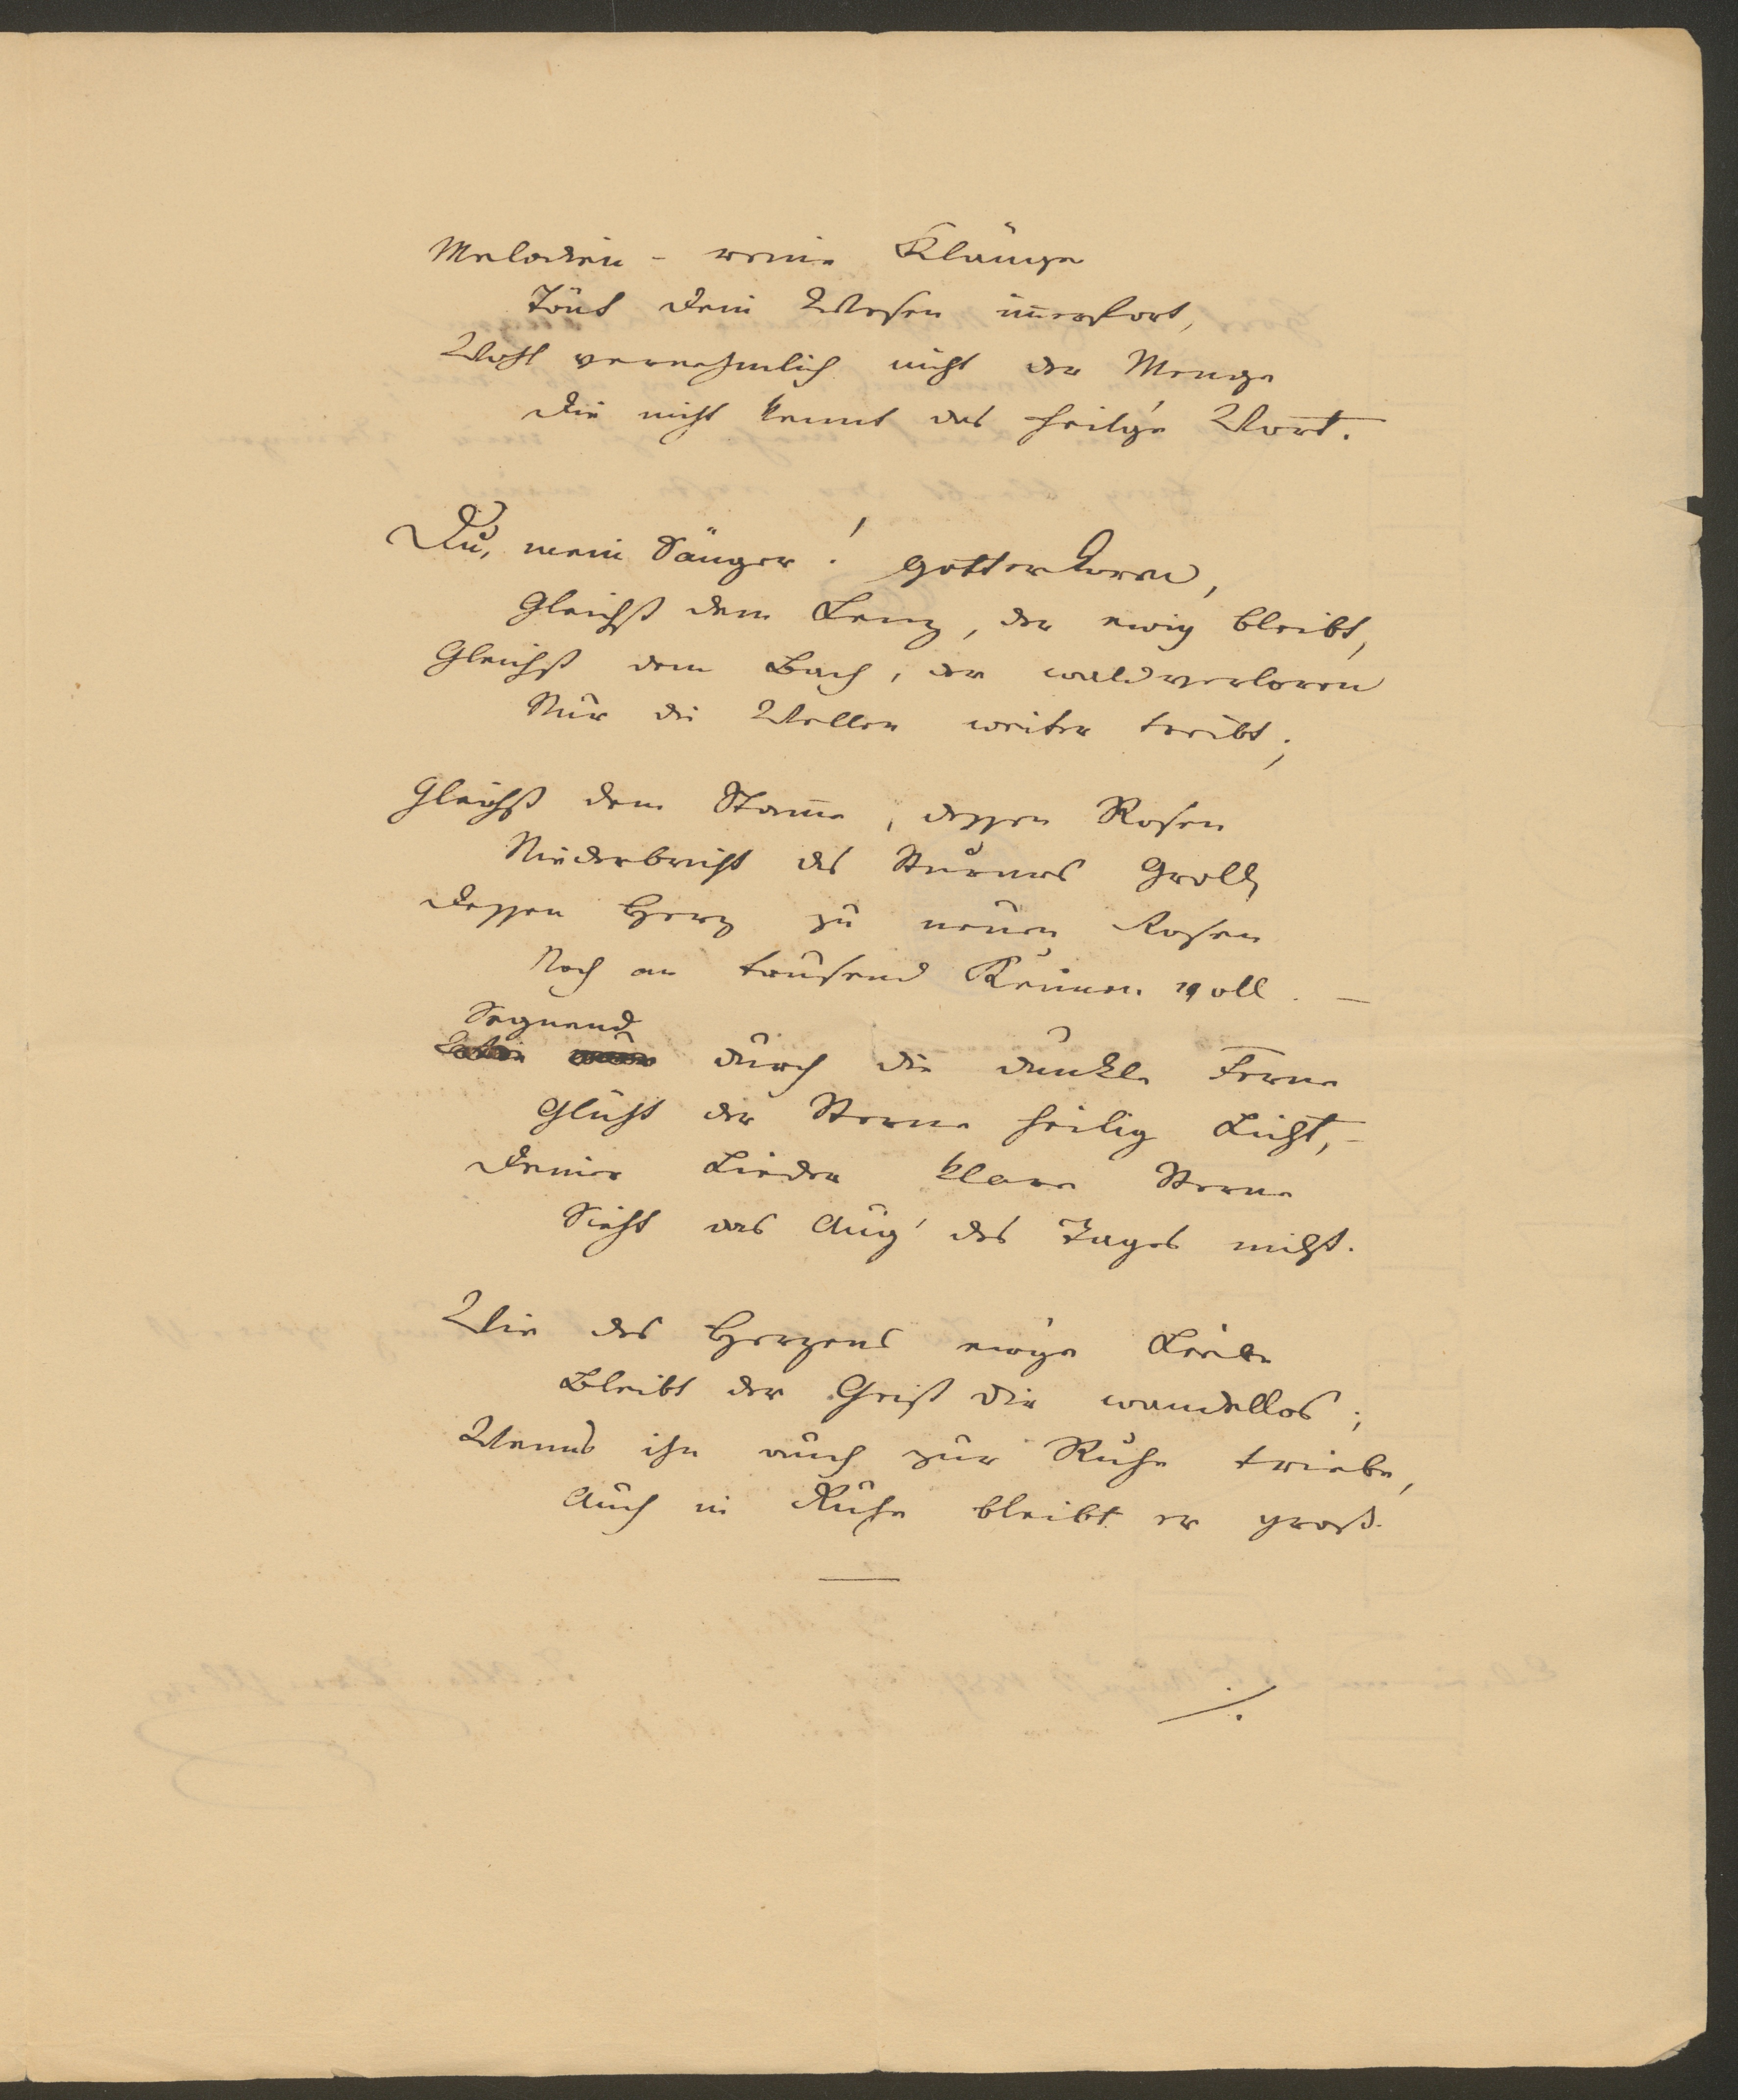 Melodien - reine Klänge
Tönt dein Wesen im̅erfort,
Wohl vernehmlich nicht der Menge
Die nicht kennt das heil'ge Wort.
Du, mein Sänger! gotterkoren,
Gleichst dem Lenz, der ewig bleibt,
Gleichst dem Bach, der waldverloren
Nur die Wellen weiter treibt;
Gleichst dem Stam̅e, dessen Rosen
Niederbricht des Sturmes Groll,
Dessen Herz zu neuen Rosen
Noch an tausend Keimen voll. —
Segnend
durch die dunkle Ferne
Glüht der Sterne heilig Licht, -
Deiner Lieder klare Sterne
Sieht das Aug' des Tages nicht.
Wie des Herzens ew'ge Liebe
Bleibt der Geist dir wandellos;
Wenns ihn auch zur Ruhe triebe,
Auch in Ruhe bleibt er groß.